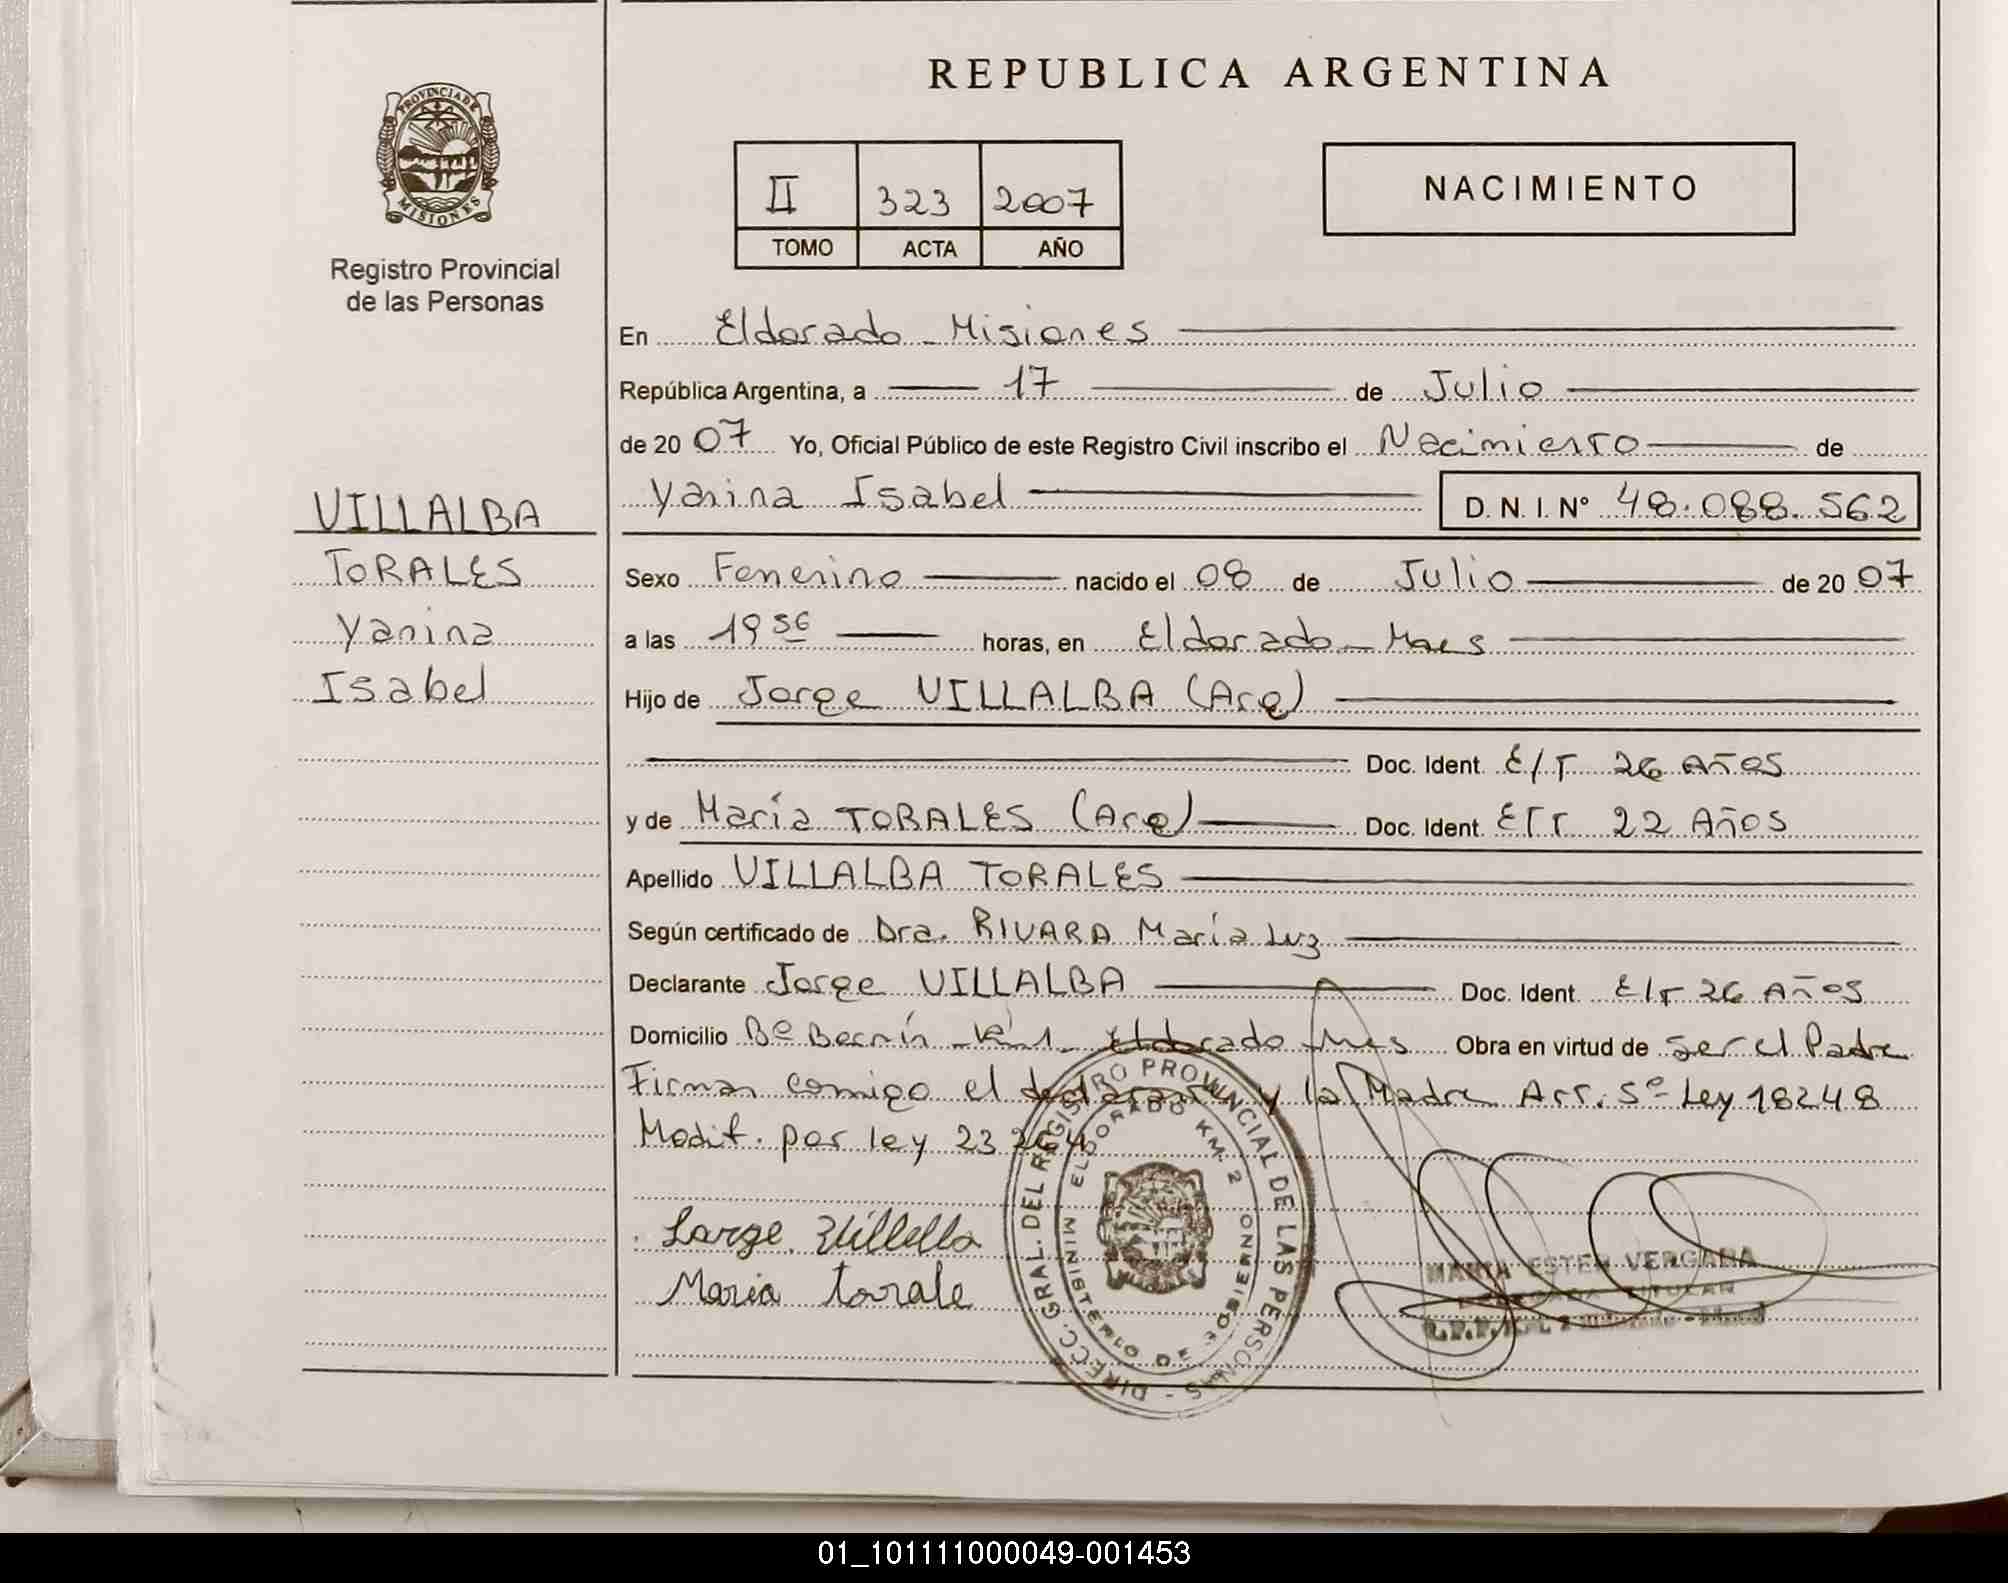 REPUBLICA ARGENTINA
PROVINCIA DE
MISIONES
Registro Provincial
de las Personas
II 323 2007
TOMO ACTA AÑO
NACIMIENTO
En Eldorado - Misiones
República Argentina, a 17 de Julio
de 2007 Yo, Oficial Público de este Registro Civil inscribo el Nacimiento de
Yanina Isabel D. N. I. Nº 48.088.562
VILLALBA
TORALES
Yanina
Isabel
Sexo Femenino nacido el 08 de Julio de 2007
a las 19 56 horas, en Eldorado - Mnes
Hijo de Jorge VILLALBA (Arg)
Doc. Ident. E/T 26 AÑOS
y de María TORALES (Arg) Doc. Ident. E/T 22 AÑOS
Apellido VILLALBA TORALES
Según certificado de Dra. RIVARA María Luz
Declarante Jorge VILLALBA Doc. Ident. E/T 26 AÑOS
Domicilio Bº Eldorado - Mnes Obra en virtud de ser el Padre
Firman comigo el declarante y la Madre Art. 5º Ley 18248
Modif. por ley 23 264
Jorge Villalba
Maria torale
DIRECC. GRAL. DEL REGISTRO PROVINCIAL DE LAS PERSONAS -
MINISTERIO DE GOBIERNO
ELDORADO KM. 2
MARIA ESTER VERGARA
01_101111000049-001453